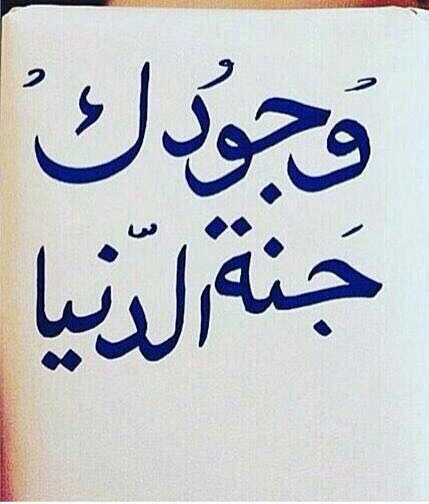 وُجودُكُ
جَنة الدّنيا